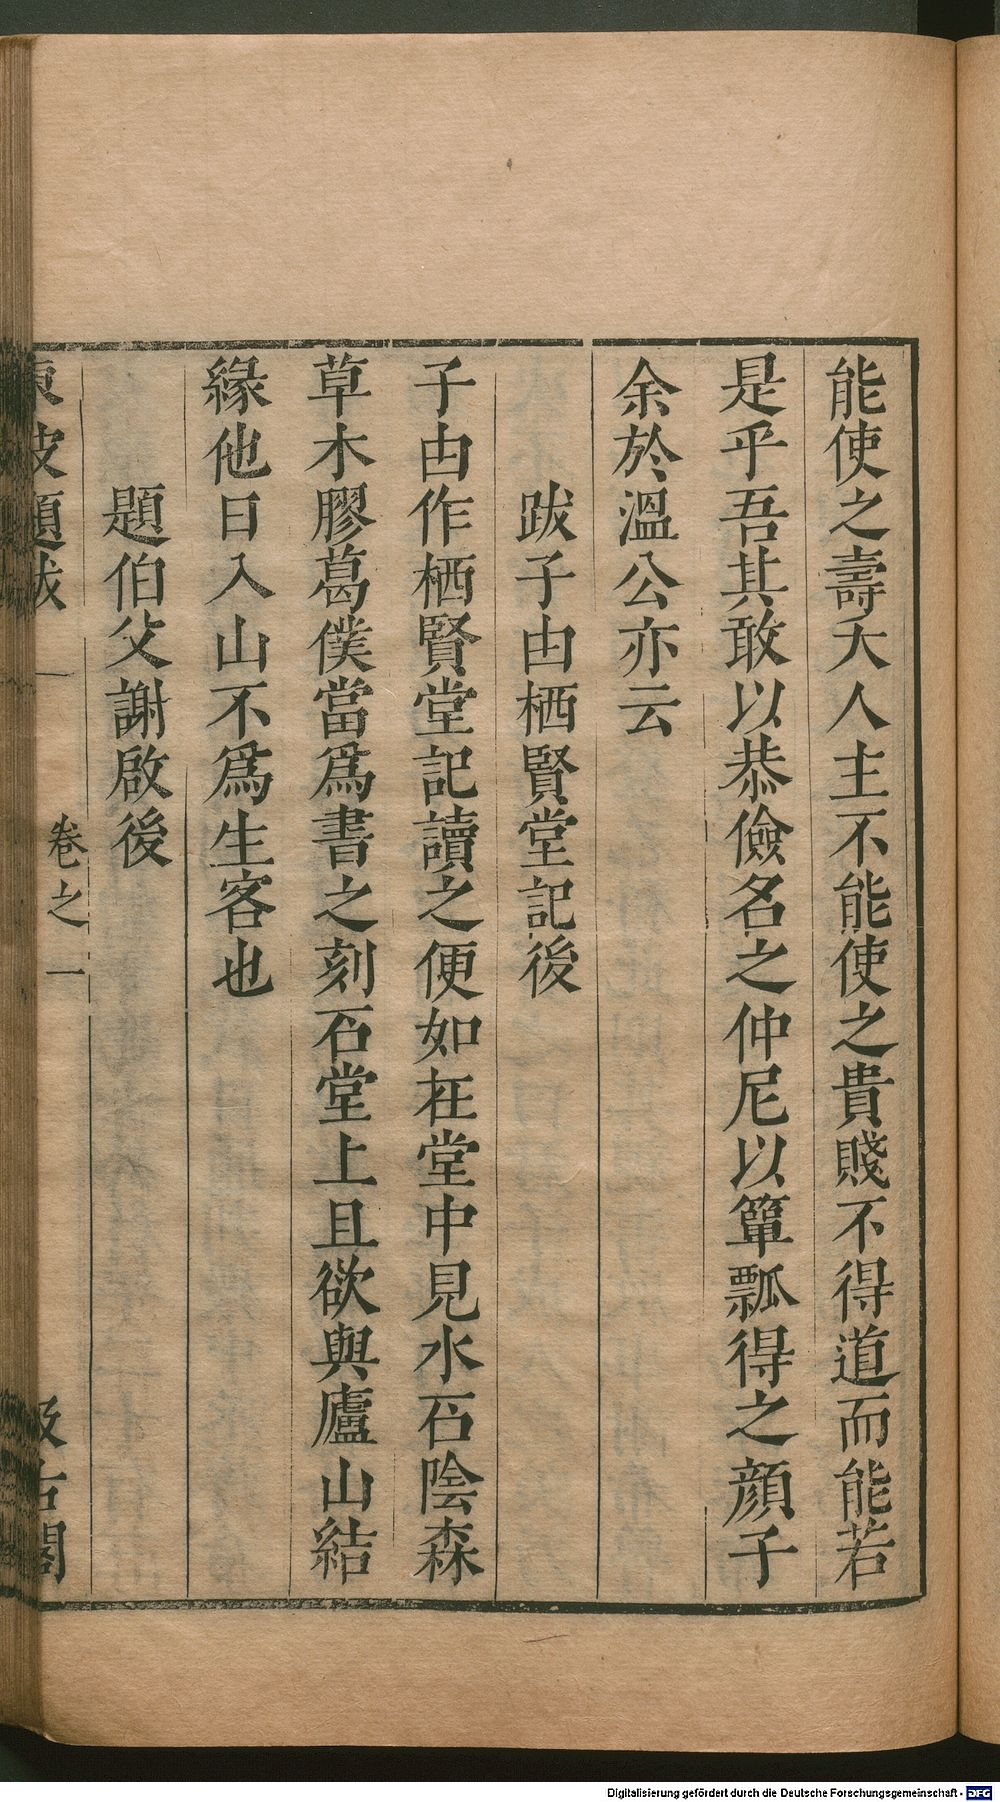 能使之壽夭人主不能使之貴賤不得道而能若
是乎吾其敢以恭儉名之仲尼以簞瓢得之顏子
余於溫公亦云
跋子由栖賢堂記後
子由作栖賢堂記讀之便如在堂中見水石陰森
草木膠葛僕當爲書之刻石堂上且欲與廬山結
緣他日入山不爲生客也
題伯父謝啟後
東坡題跋 卷之一 汲古閣
Digitalisierung gefördert durch die Deutsche Forschungsgemeinschaft - DFG